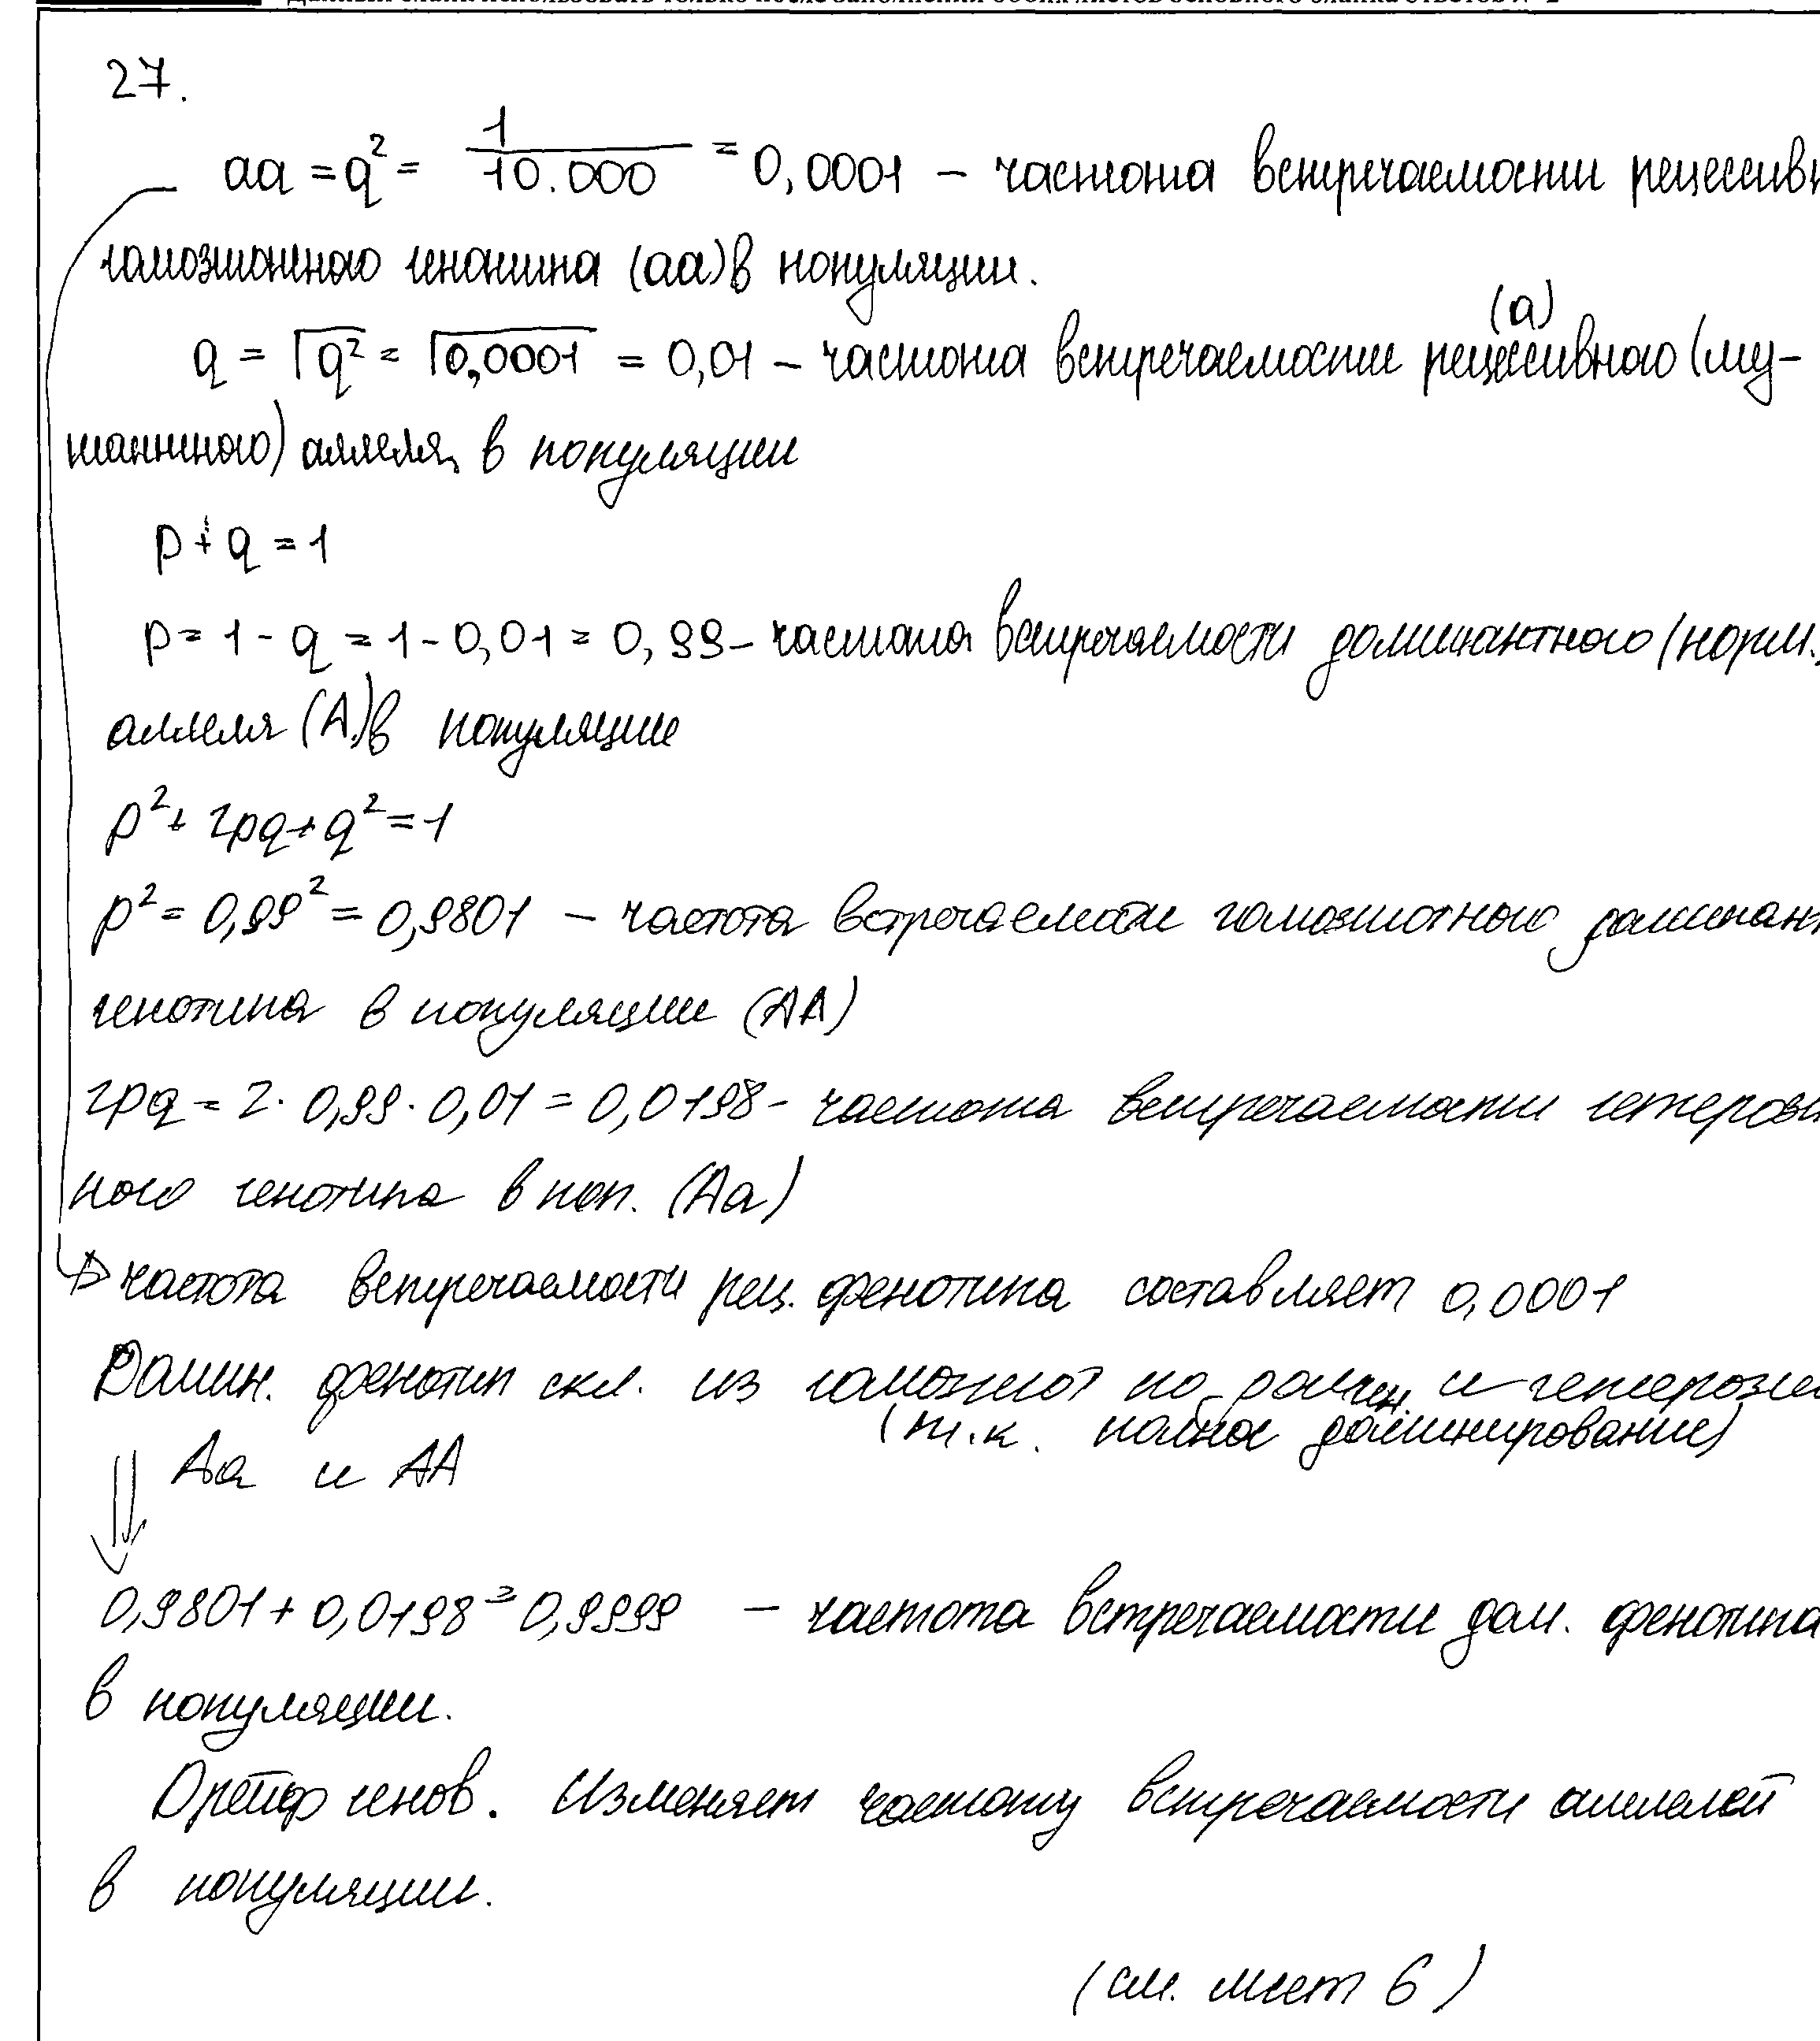 Данный бланк использовать только после заполнения обоих листов основного бланка ответов № 2
27.
aa = q² = 1/10.000 = 0,0001 – частота встречаемости рецессивн
гомозиготного генотипа (aa) в популяции.
q = √q² = √0,0001 = 0,01 – частота встречаемости рецессивного (a) (му-
тантного) аллеля в популяции
p + q = 1
p = 1 - q = 1 - 0,01 = 0,99 – частота встречаемости доминантного (норм.)
аллеля (A) в популяции
p² + 2pq + q² = 1
p² = 0,99² = 0,9801 – частота встречаемости гомозиготного доминант
генотипа в популяции (AA)
2pq = 2 · 0,99 · 0,01 = 0,0198 - частота встречаемости гетерози
ного генотипа в поп. (Aa)
→ частота встречаемости рец. фенотипа составляет 0,0001
Домин. фенотип скл. из гомозигот по домин. и гетерозиг
(т.к. полное доминирование)
Aa и AA
⇓
0,9801 + 0,0198 = 0,9999 – частота встречаемости дом. фенотипа
в популяции.
Дрейф генов. Изменяет частоту встречаемости аллелей
в популяции.
(см. лист 6)